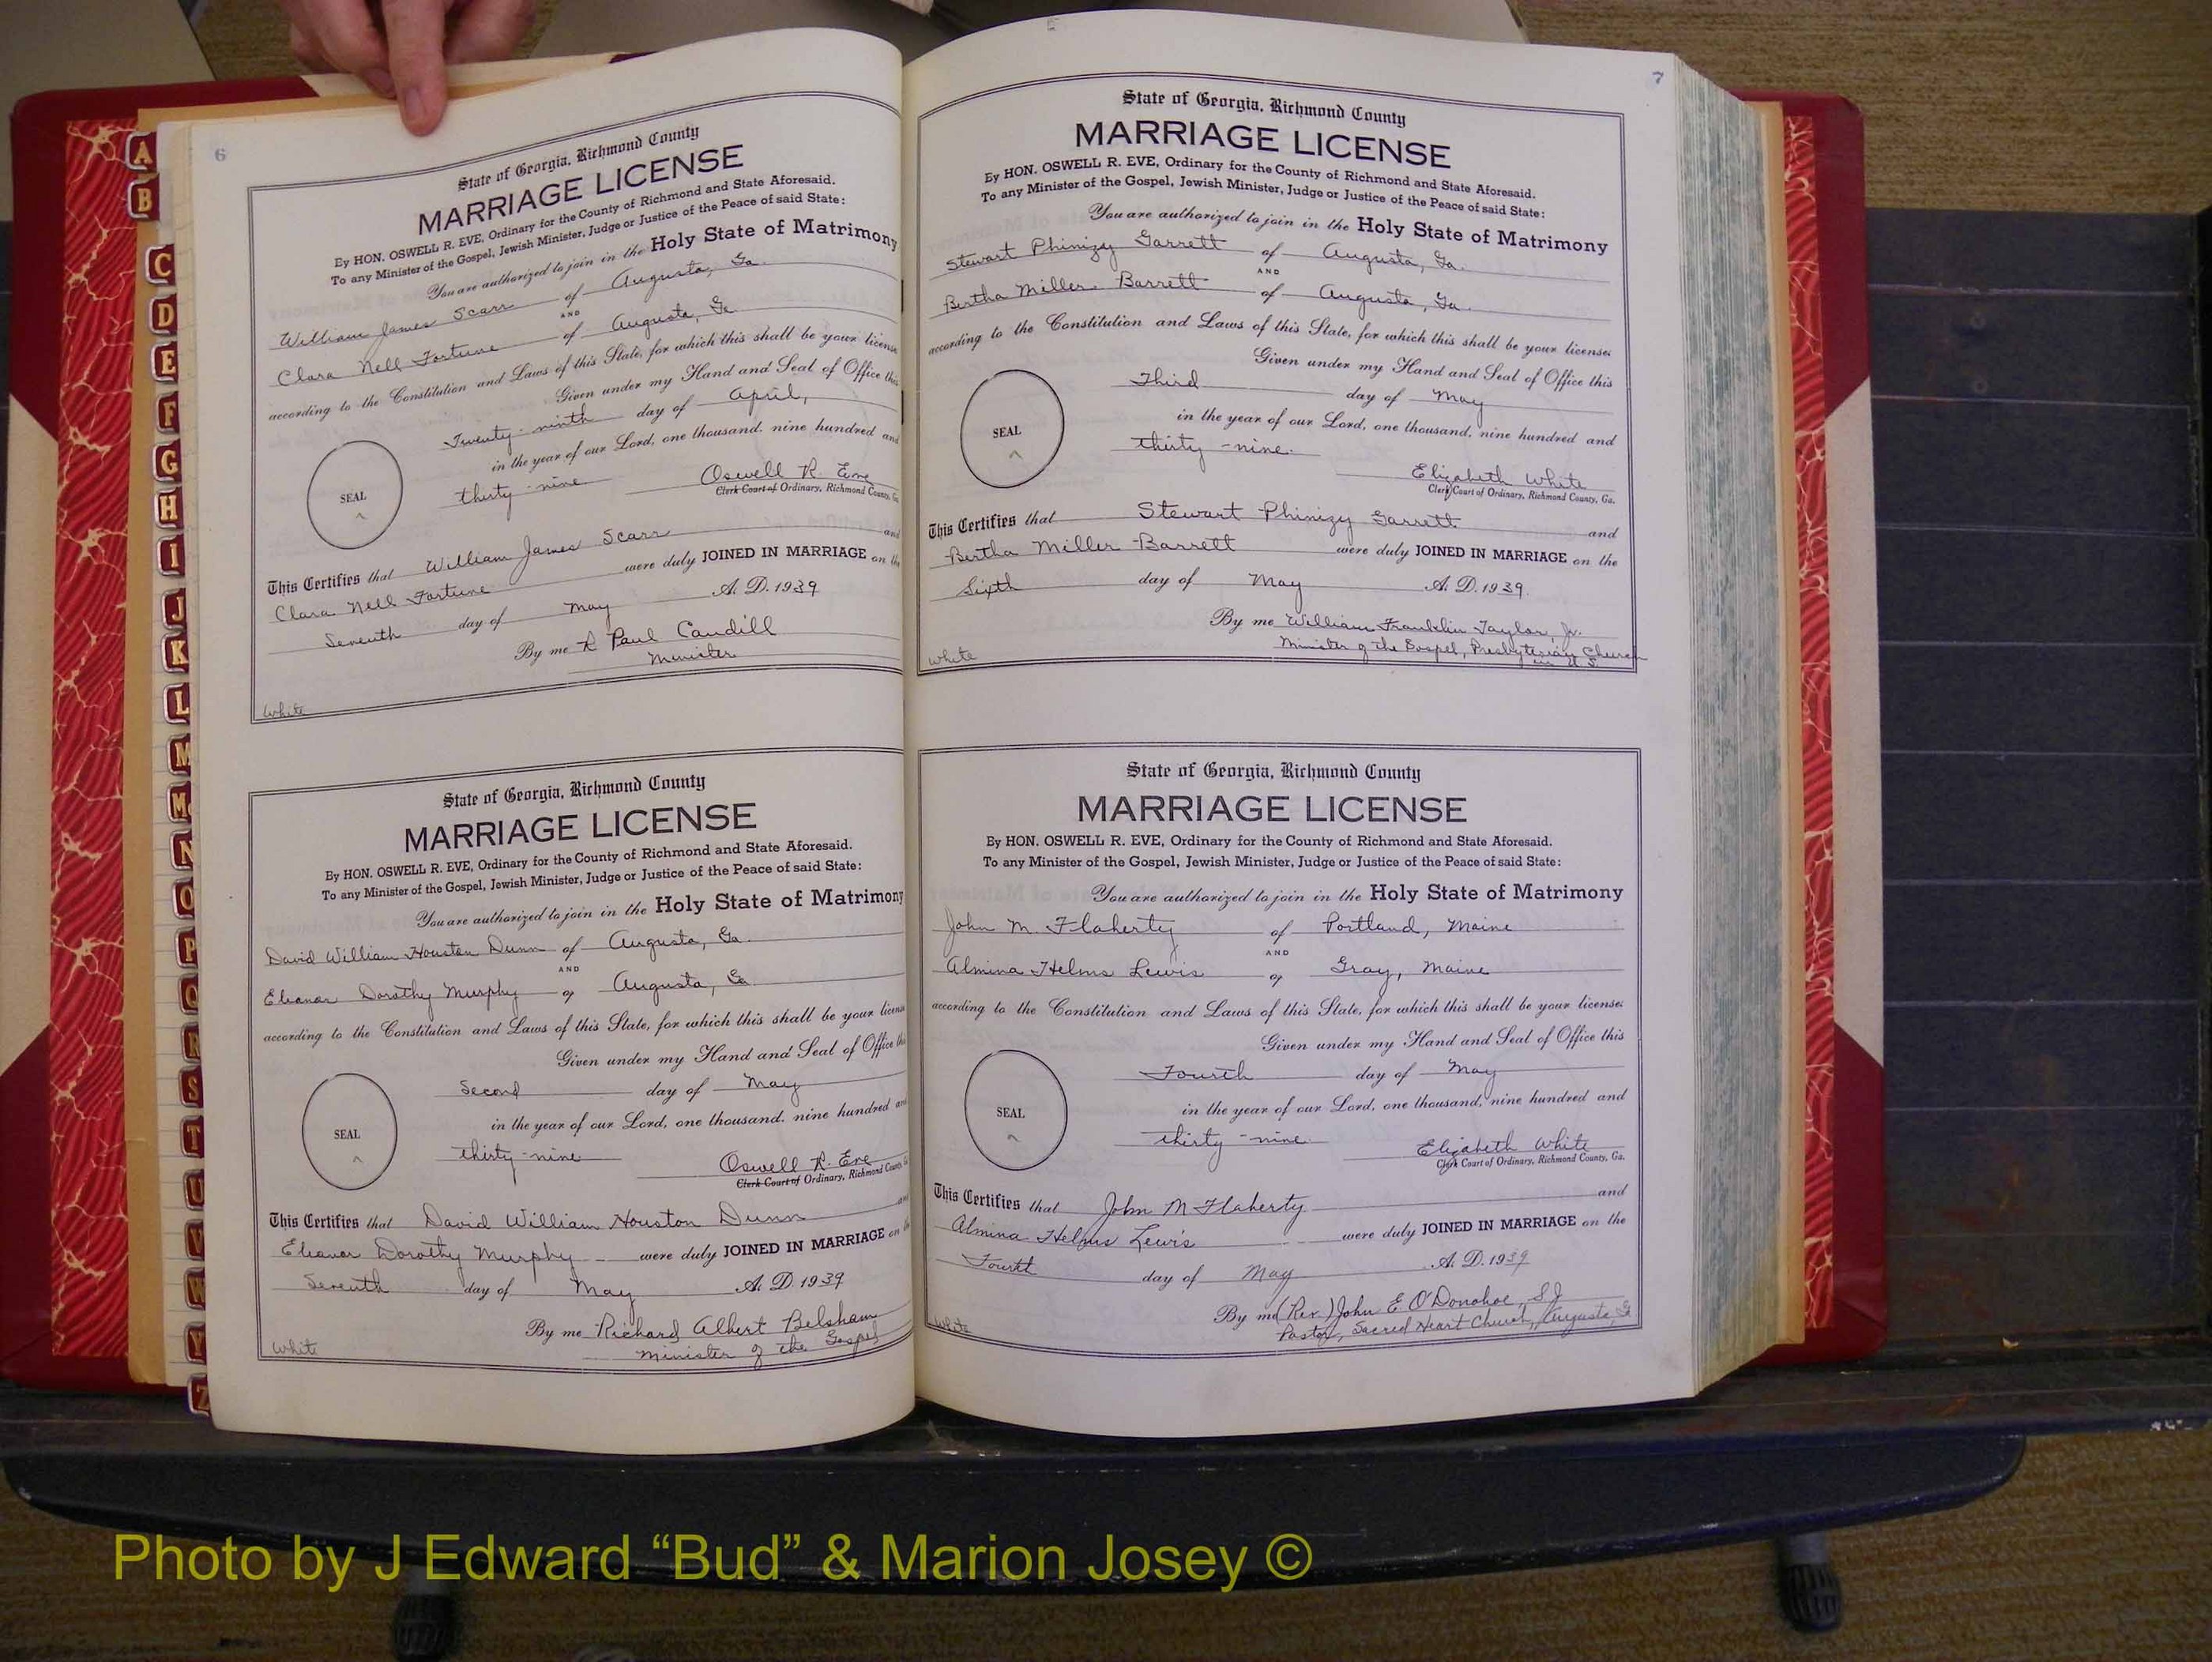 A
B
C
D
E
F
G
H
I
J
K
L
M
Mc
N
O
P
Q
R
S
T
U
V
W
Y
Z
6
State of Georgia, Richmond County
MARRIAGE LICENSE
By HON. OSWELL R. EVE, Ordinary for the County of Richmond and State Aforesaid.
To any Minister of the Gospel, Jewish Minister, Judge or Justice of the Peace of said State:
You are authorized to join in the Holy State of Matrimony
William James Scarr of Augusta, Ga.
AND
Clara Nell Fortune of Augusta, Ga
according to the Constitution and Laws of this State, for which this shall be your license
Given under my Hand and Seal of Office this
Twenty-ninth day of April,
in the year of our Lord, one thousand, nine hundred and
SEAL
thirty-nine Oswell R. Eve
Clerk Court of Ordinary, Richmond County, Ga.
This Certifies that William James Scarr and
Clara Nell Fortune were duly JOINED IN MARRIAGE on the
Seventh day of May A. D. 1939
By me R Paul Caudill
Minister
White
State of Georgia, Richmond County
MARRIAGE LICENSE
By HON. OSWELL R. EVE, Ordinary for the County of Richmond and State Aforesaid.
To any Minister of the Gospel, Jewish Minister, Judge or Justice of the Peace of said State:
You are authorized to join in the Holy State of Matrimony
David William Houston Dunn of Augusta, Ga.
AND
Eleanor Dorothy Murphy of Augusta, Ga.
according to the Constitution and Laws of this State, for which this shall be your license
Given under my Hand and Seal of Office this
Second day of May
in the year of our Lord, one thousand, nine hundred and
SEAL
thirty-nine Oswell R. Eve
Clerk Court of Ordinary, Richmond County
This Certifies that David William Houston Dunn and
Eleanor Dorothy Murphy were duly JOINED IN MARRIAGE on
Seventh day of May A. D. 1939
By me Richard Albert Belsham
Minister of the Gospel
White
7
State of Georgia, Richmond County
MARRIAGE LICENSE
By HON. OSWELL R. EVE, Ordinary for the County of Richmond and State Aforesaid.
To any Minister of the Gospel, Jewish Minister, Judge or Justice of the Peace of said State:
You are authorized to join in the Holy State of Matrimony
Stewart Phinizy Garrett of Augusta, Ga.
AND
Bertha Miller Barrett of Augusta, Ga.
according to the Constitution and Laws of this State, for which this shall be your license:
Given under my Hand and Seal of Office this
Third day of May
in the year of our Lord, one thousand, nine hundred and
SEAL
thirty-nine.
Elizabeth White
Clerk Court of Ordinary, Richmond County, Ga.
This Certifies that Stewart Phinizy Garrett and
Bertha Miller Barrett were duly JOINED IN MARRIAGE on the
Sixth day of May A. D. 1939.
By me William Franklin Taylor, Jr.
Minister of the Gospel, Presbyterian Church
in U S
White
State of Georgia, Richmond County
MARRIAGE LICENSE
By HON. OSWELL R. EVE, Ordinary for the County of Richmond and State Aforesaid.
To any Minister of the Gospel, Jewish Minister, Judge or Justice of the Peace of said State:
You are authorized to join in the Holy State of Matrimony
John M. Flaherty of Portland, Maine
AND
Almina Helms Lewis of Gray, Maine
according to the Constitution and Laws of this State, for which this shall be your license:
Given under my Hand and Seal of Office this
Fourth day of May
in the year of our Lord, one thousand, nine hundred and
SEAL
thirty-nine.
Elizabeth White
Clerk Court of Ordinary, Richmond County, Ga.
This Certifies that John M Flaherty and
Almina Helms Lewis were duly JOINED IN MARRIAGE on the
Fourth day of May A. D. 1939
By me (Rev.) John E O'Donohoe, S.J
Pastor, Sacred Heart Church, Augusta, Ga
White
Photo by J Edward “Bud” & Marion Josey ©